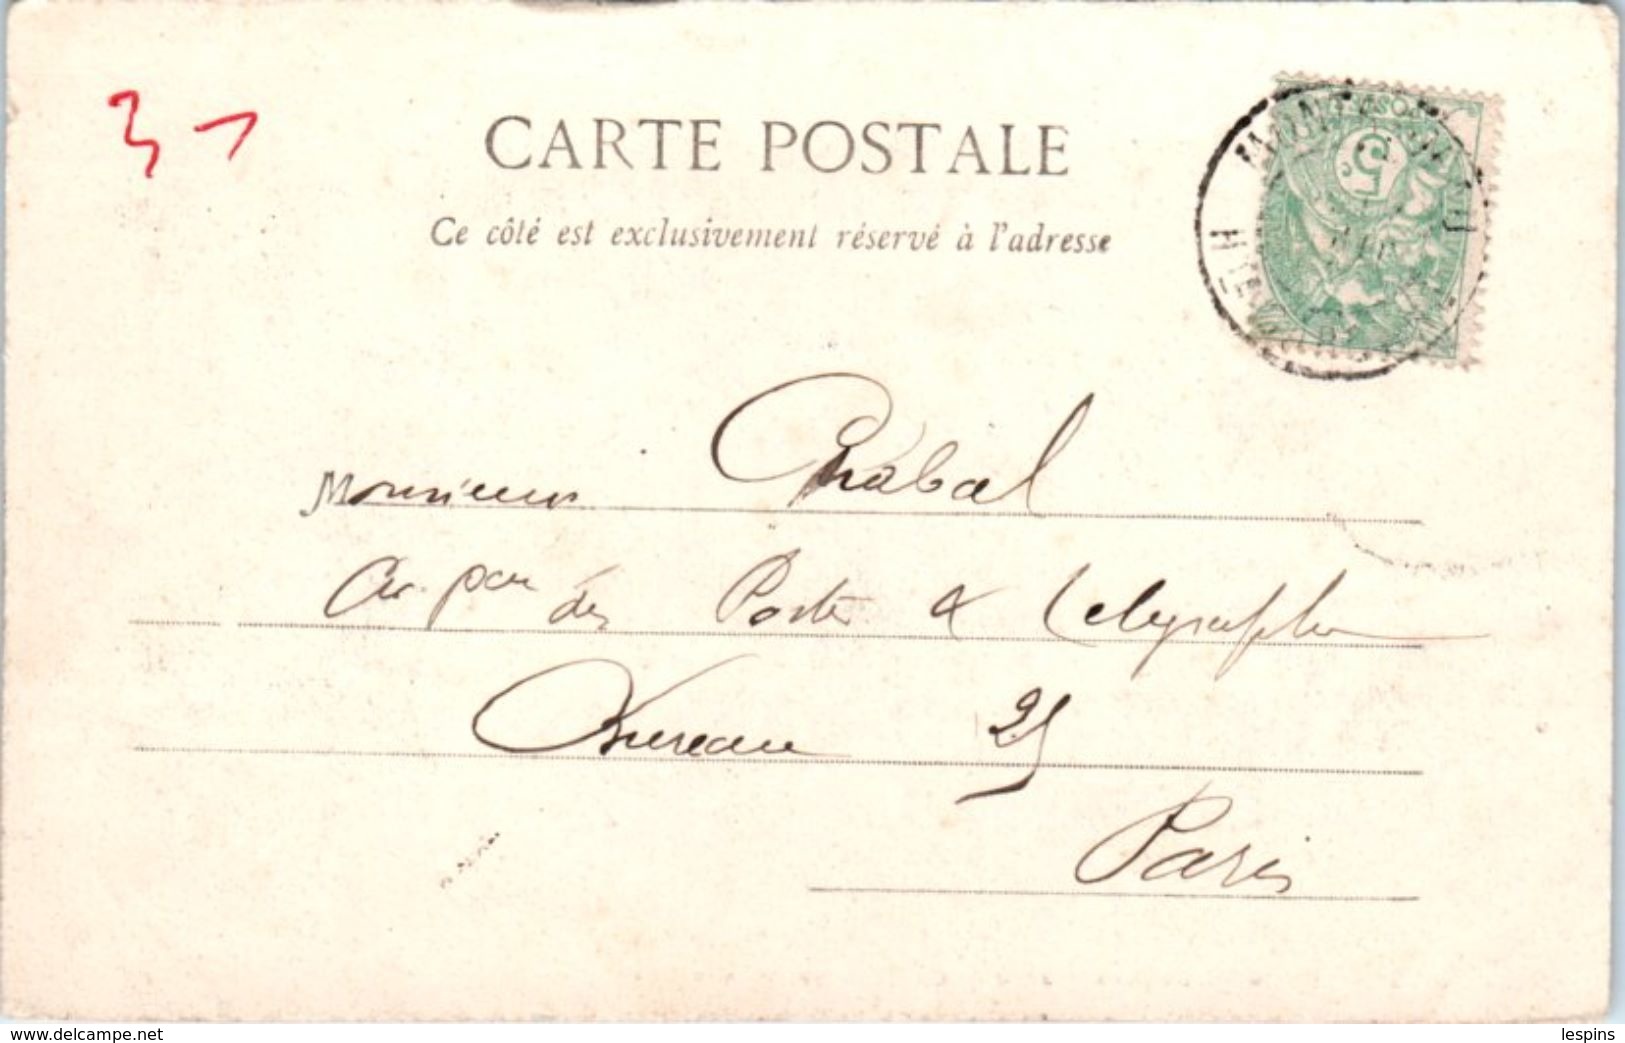 3 -
CARTE POSTALE
Ce côté est exclusivement réservé à l'adresse
5
Monsieur Chabal
des Postes & Telegraphes
Bureau 25
Paris
www.delcampe.net
lespins